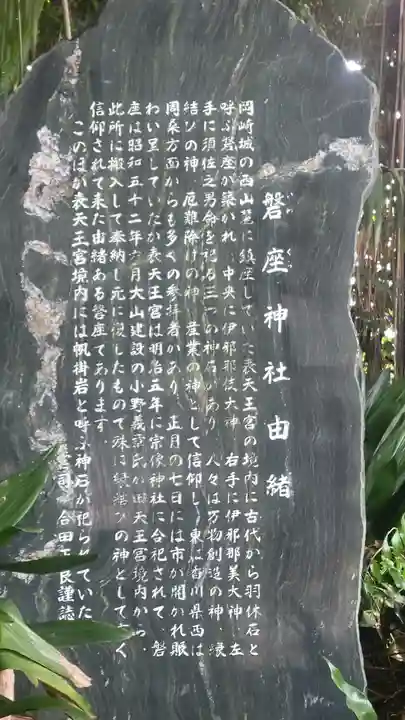 磐座神社由緒
いわくら
岡崎城の西山麓に鎮座していた表天王宮の境内に古代から羽休石と
呼ぶ磐座が築かれ、中央に伊那那岐大神、右手に伊那那美大神、左
手に須佐之男命を祀る三つの神石があり、人々は万物創造の神、縁
結びの神、厄難除けの神、産業の神として信仰し、東は香川県西は
周桑方面からも多くの参拝者があり、正月の七日には市が開かれ賑
わい呈していたが表天王宮は明治五年に宗像神社に合祀されて、磐
座は昭和五十二年六月大山建設の小野義 氏が旧天王宮境内から、
此所に搬入して奉納し元に復したもので殊に縁結びの神として古く
信仰されて来た由緒ある磐座であります。
このほか表天王宮境内には帆掛岩と呼ぶ神石が祀られていた
宮司 合田正良謹誌